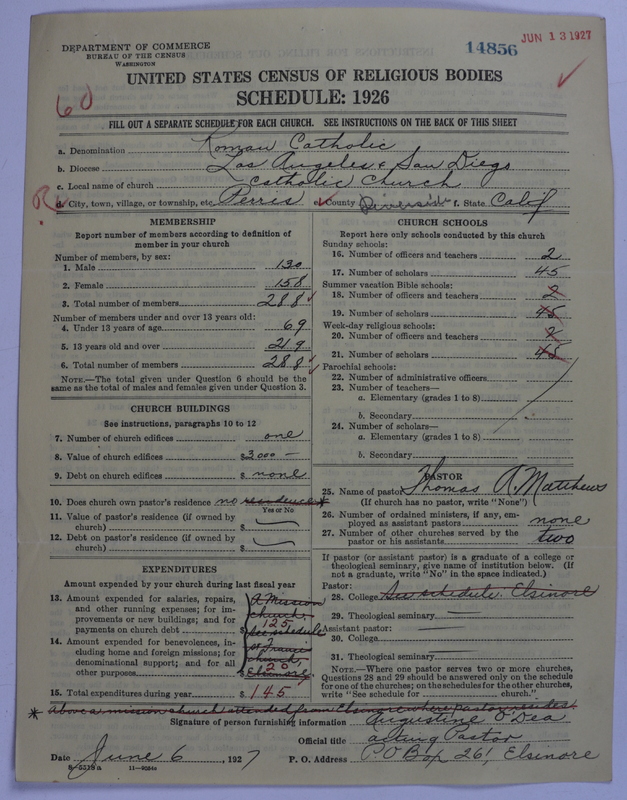 DEPARTMENT OF COMMERCE
BUREAU OF THE CENSUS
WASHINGTON
14856
JUN 13 1927
UNITED STATES CENSUS OF RELIGIOUS BODIES
SCHEDULE: 1926
60
FILL OUT A SEPARATE SCHEDULE FOR EACH CHURCH. SEE INSTRUCTIONS ON THE BACK OF THIS SHEET
a. Denomination Roman Catholic
b. Diocese Los Angeles & San Diego
c. Local name of church Catholic Church
d. City, town, village, or township, etc. Perris e. County Riverside f. State Calif
R
MEMBERSHIP
Report number of members according to definition of
member in your church
Number of members, by sex:
1. Male 130
2. Female 158
3. Total number of members 288
Number of members under and over 13 years old:
4. Under 13 years of age 69
5. 13 years old and over 219
6. Total number of members 288
NOTE.—The total given under Question 6 should be the
same as the total of males and females given under Question 3.
CHURCH BUILDINGS
See instructions, paragraphs 10 to 12
7. Number of church edifices one
8. Value of church edifices $3000 —
9. Debt on church edifices $ none
10. Does church own pastor's residence no residence *
Yes or No
11. Value of pastor's residence (if owned by
church) $
12. Debt on pastor's residence (if owned by
church) $
EXPENDITURES
Amount expended by your church during last fiscal year
13. Amount expended for salaries, repairs,
and other running expenses; for im-
provements or new buildings; and for
payments on church debt $
A Mission
Church,
125
See schedule
14. Amount expended for benevolences, in-
cluding home and foreign missions; for
denominational support; and for all
other purposes $
Church,
20
Elsinore
15. Total expenditures during year $ 145
CHURCH SCHOOLS
Report here only schools conducted by this church
Sunday schools:
16. Number of officers and teachers 2
17. Number of scholars 45
Summer vacation Bible schools:
18. Number of officers and teachers 2
19. Number of scholars 45
Week-day religious schools:
20. Number of officers and teachers 2
21. Number of scholars 45
Parochial schools:
22. Number of administrative officers
23. Number of teachers—
a. Elementary (grades 1 to 8)
b. Secondary
24. Number of scholars—
a. Elementary (grades 1 to 8)
b. Secondary
PASTOR
25. Name of pastor Thomas A. Matthews
(If church has no pastor, write "None")
26. Number of ordained ministers, if any, em-
ployed as assistant pastors none
27. Number of other churches served by the
pastor or his assistants two
If pastor (or assistant pastor) is a graduate of a college or
theological seminary, give name of institution below. (If
not a graduate, write "No" in the space indicated.)
Pastor:
28. College See schedule: Elsinore
29. Theological seminary
Assistant pastor:
30. College
31. Theological seminary
NOTE.—Where one pastor serves two or more churches,
Questions 28 and 29 should be answered only on the schedule
for one of the churches; on the schedules for the other churches,
write "See schedule for ............ church."
* Above a mission church attended from Elsinore where pastor resides.
Signature of person furnishing information Augustine O'Dea
Official title acting Pastor
Date June 6, 1927 P. O. Address P.O Box 261, Elsinore
8-5318a 11-9584